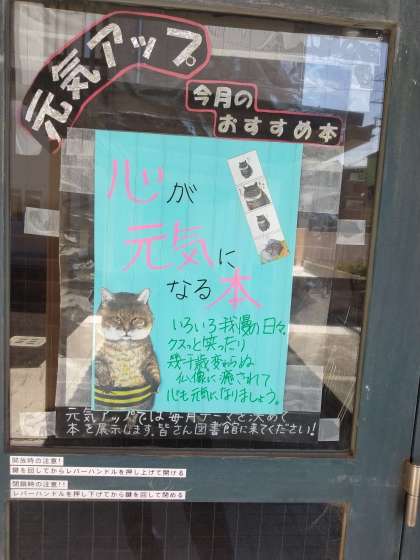 元気アップ
今月の
おすすめ本
心が
元気に
なる本
いろいろ我慢の日々
クスッと笑ったり
幾千歳変わらぬ
仏像に癒されて
心も元気になりましょう。
元気アップでは毎月テーマを決めて
本を展示します。皆さん図書館に来てください!
開放時の注意!
鍵を回してからレバーハンドルを押し上げて開ける
閉鎖時の注意!!
レバーハンドルを押し下げてから鍵を回して閉める